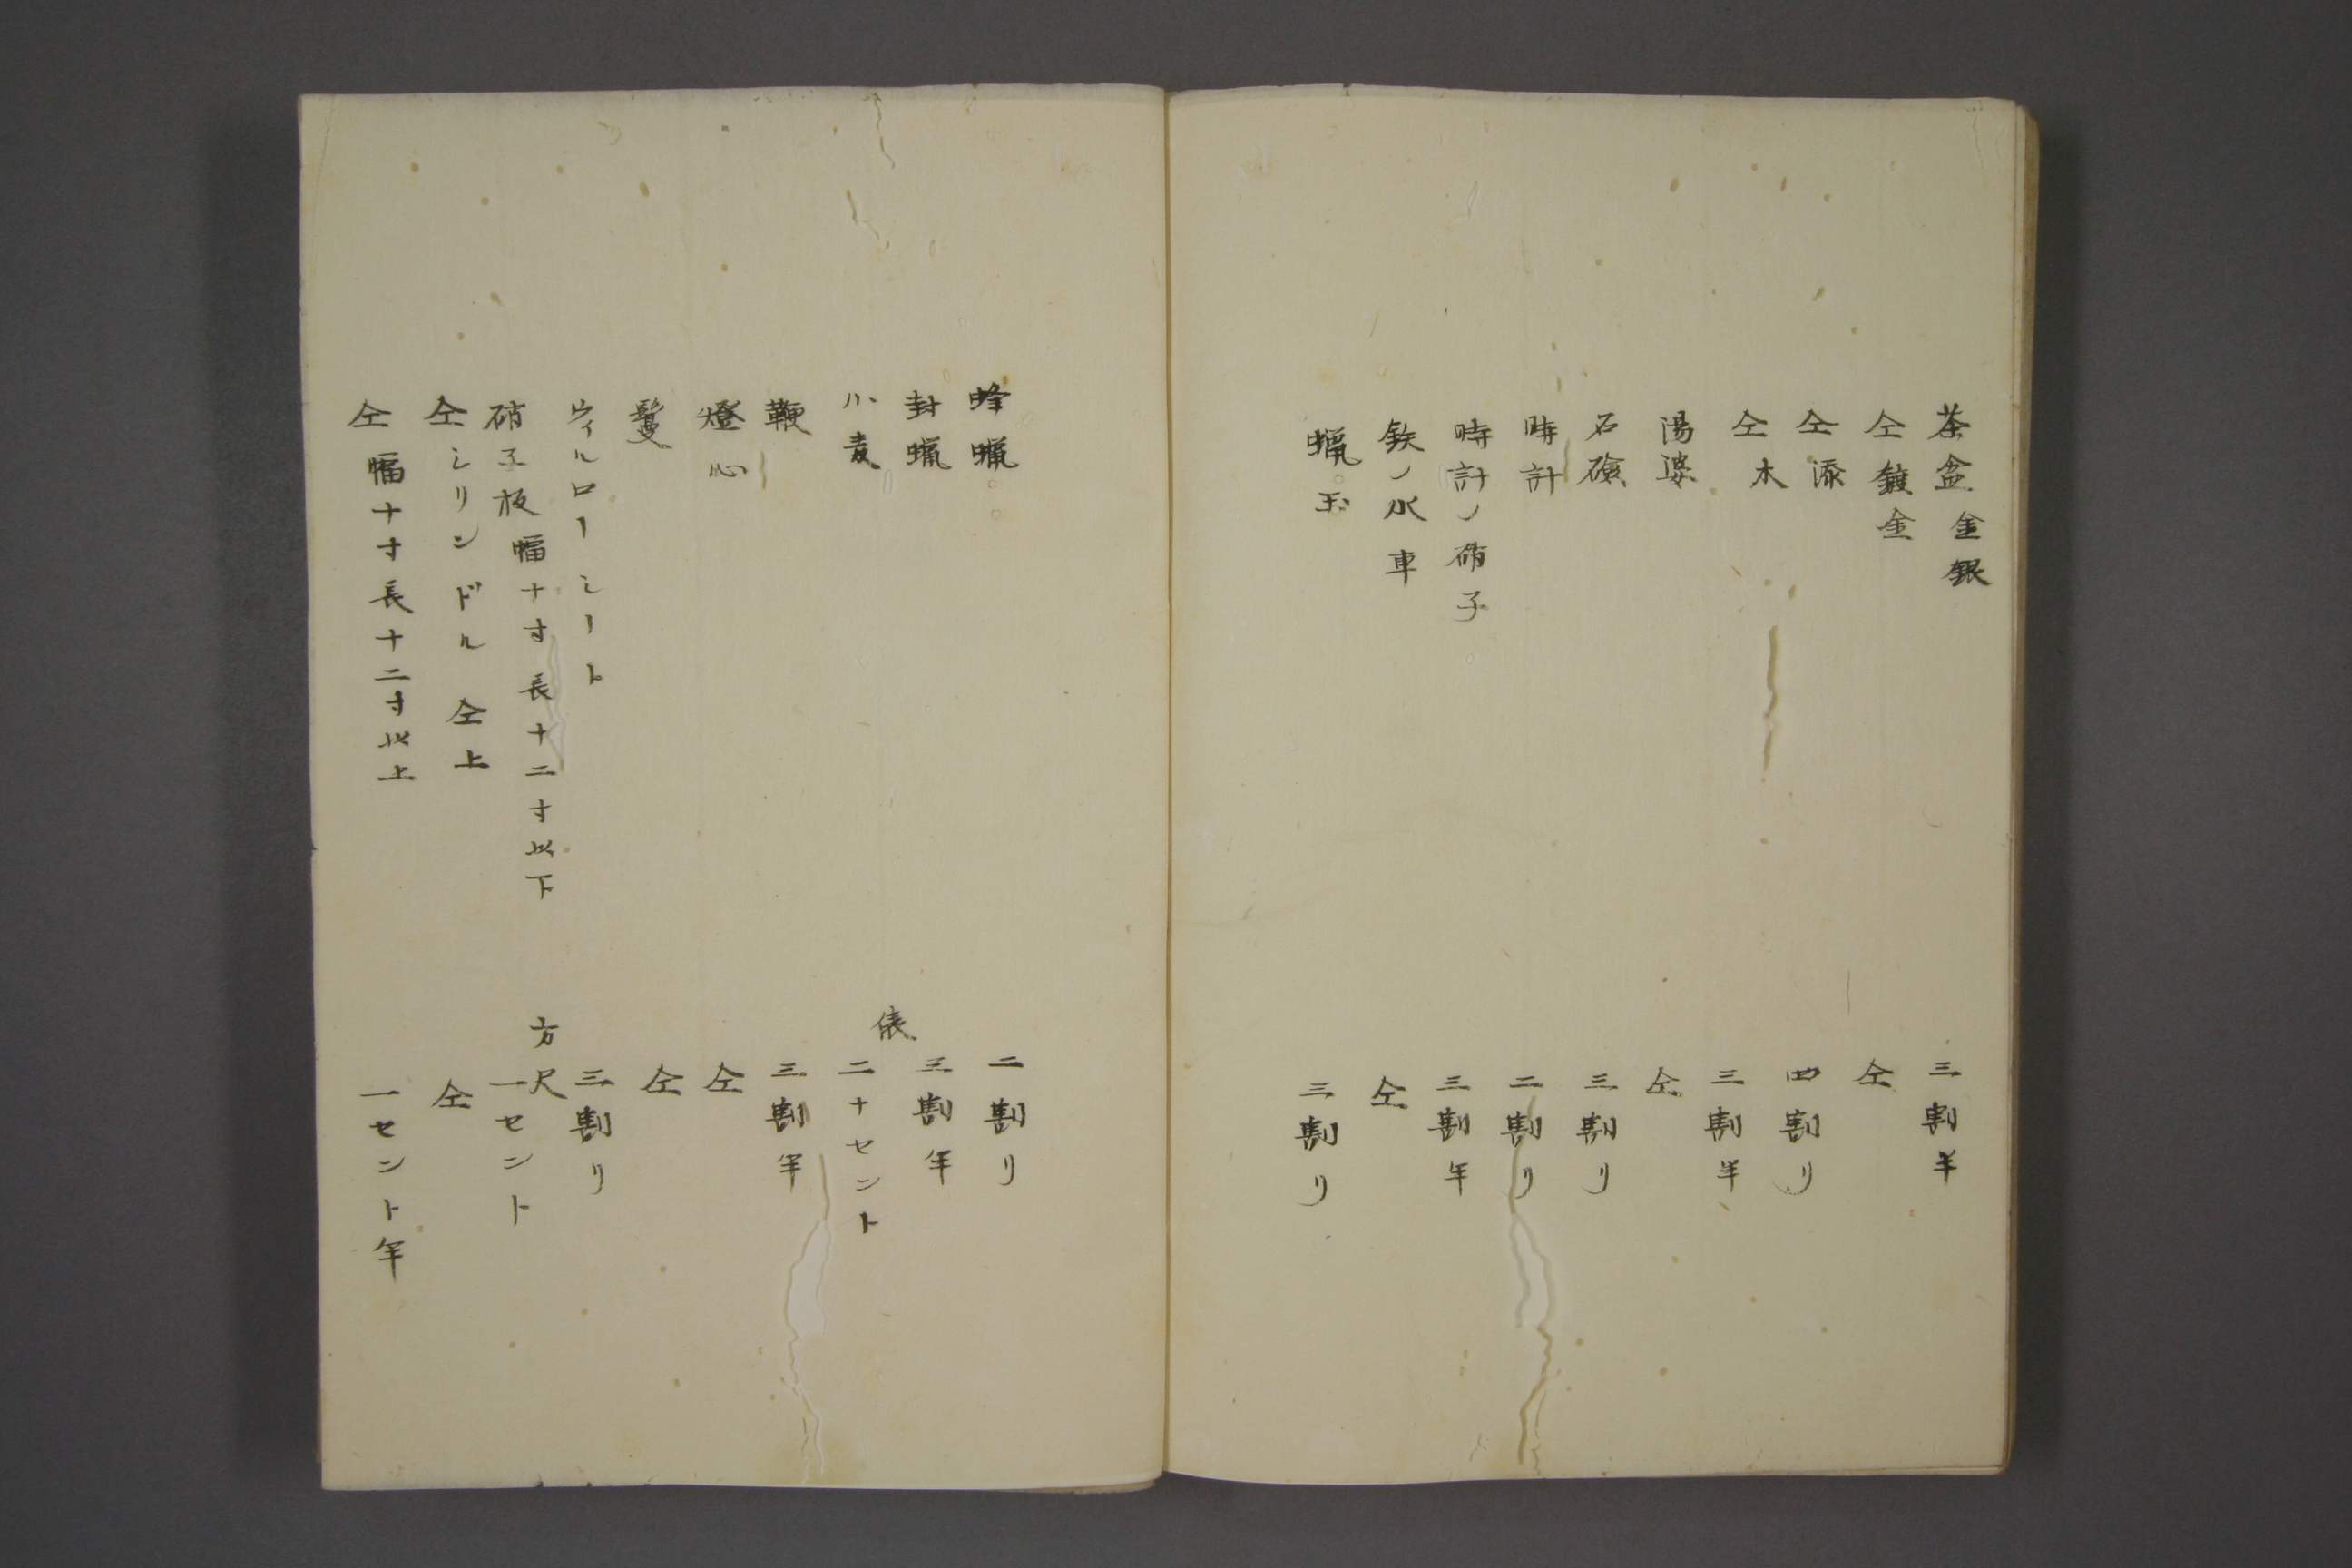 茶盆金銀 三割半
仝鍍金 仝
仝漆 四割り
仝木 三割半
湯婆 仝
石礆 三割り
時計 二割り
時計ノ硝子 三割半
鉄ノ水車 仝
蝋玉 三割り
蜂蝋 二割り
封蝋 三割半
小麦 俵二十セント
鞭 三割半
燈心 仝
鬘 仝
ウィルローシート 三割り
硝子板幅十寸長十二寸以下 方尺一セント
仝シリンドル仝上 仝
仝幅十寸長十二寸以上 一セント半